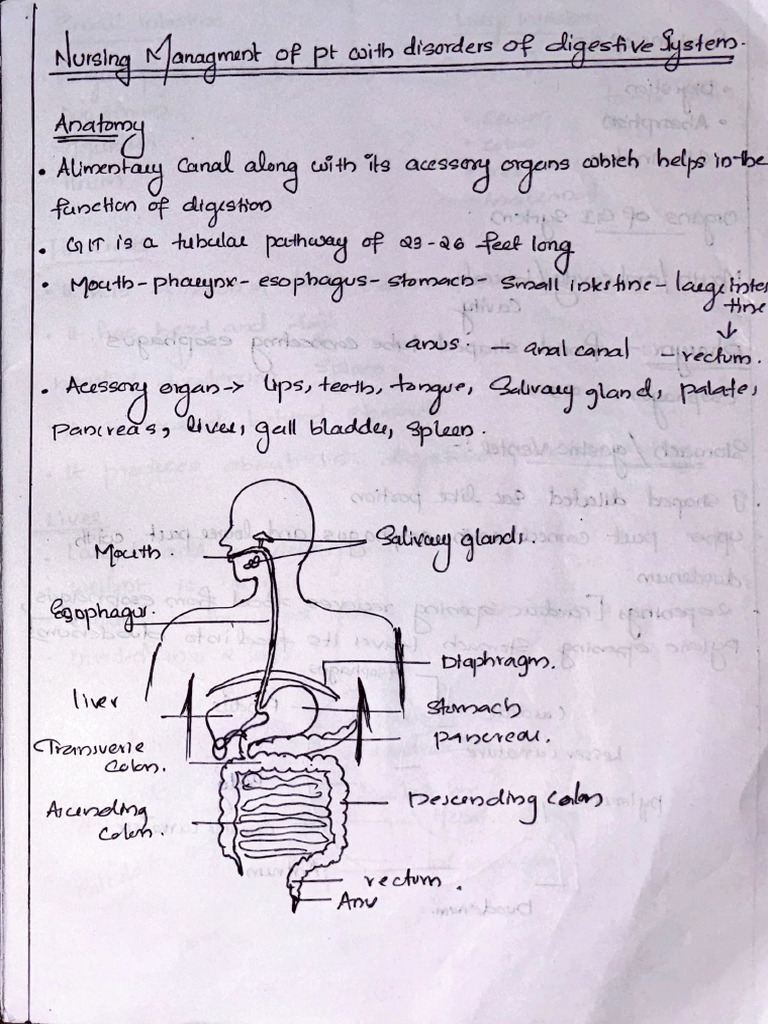 Nursing Managment of pt with disorders of digestive System.
Anatomy
• Alimentary Canal along with its acessory organs which helps in the
function of digestion
• GIT is a tubular pathway of 23-26 feet long
• Mouth - pharynx - esophagus - stomach - small intestine - large intes
tine
↓
anus. - anal canal - rectum.
• Acessory organ → lips, teeth, tongue, Salivary gland, palate,
pancreas, liver, gall bladder, spleen.
Mouth.
Salivary glands.
Esophagus.
Diaphragm.
liver
Stomach
Transverse
Colon.
pancreas.
Ascending
Colon.
Descending Colon
rectum.
Anu